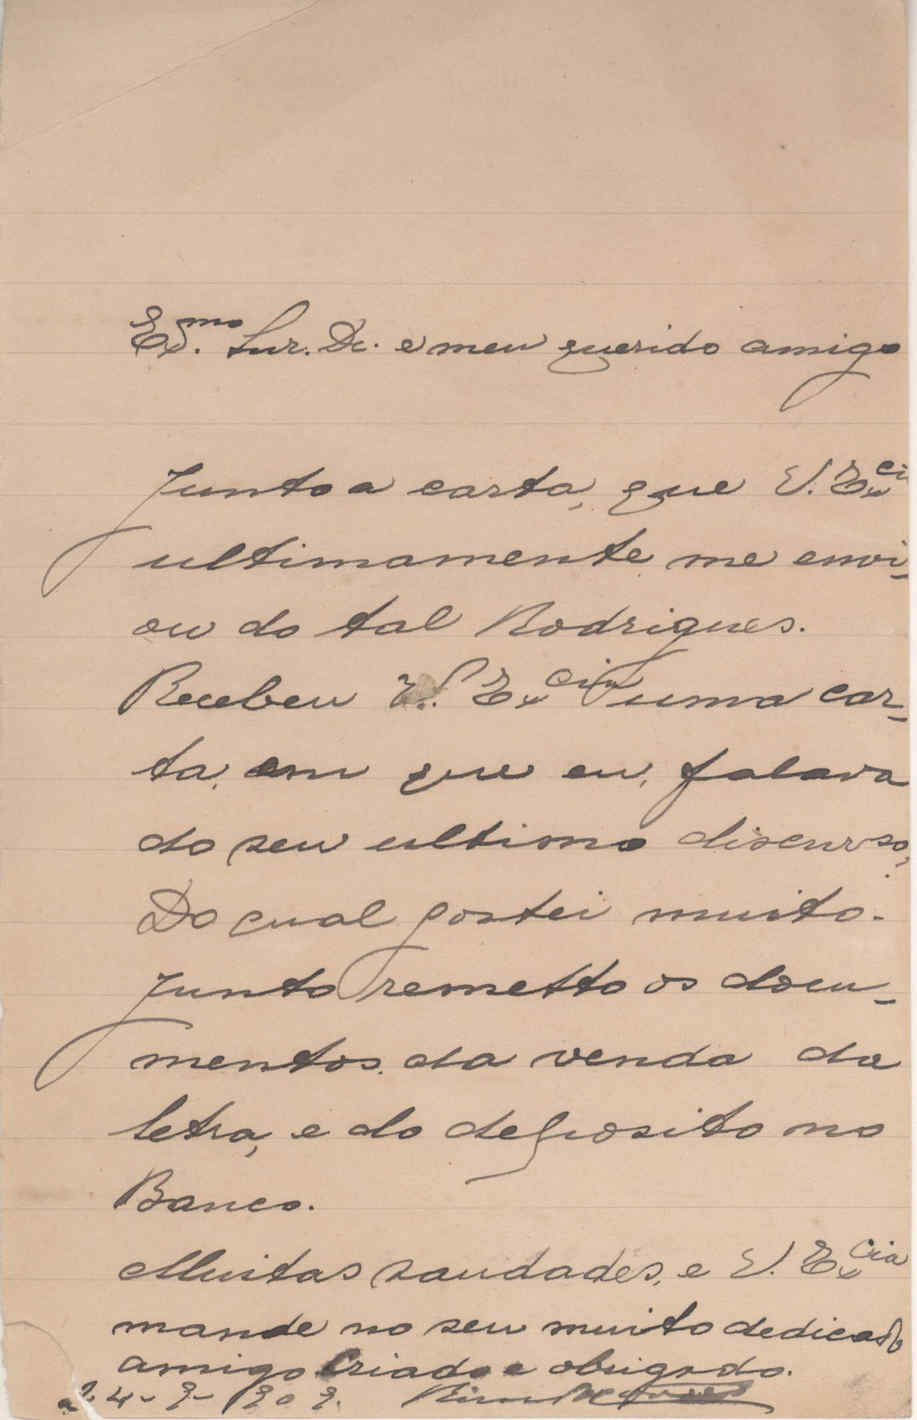 Ex.mo Snr. Dr. e meu querido amigo
Junto a carta, que V. Excia
ultimamente me envi-
ou do tal Rodrigues.
Recebeu V. Excia uma car-
ta, em que eu, falava
do seu ultimo discurso,
Do cual gostei muito.
Junto remetto os docu-
mentos da venda da
letra, e do deposito no
Banco.
Muitas saudades, e V. Excia
mande no seu muito dedicado
amigo criado e obrigado.